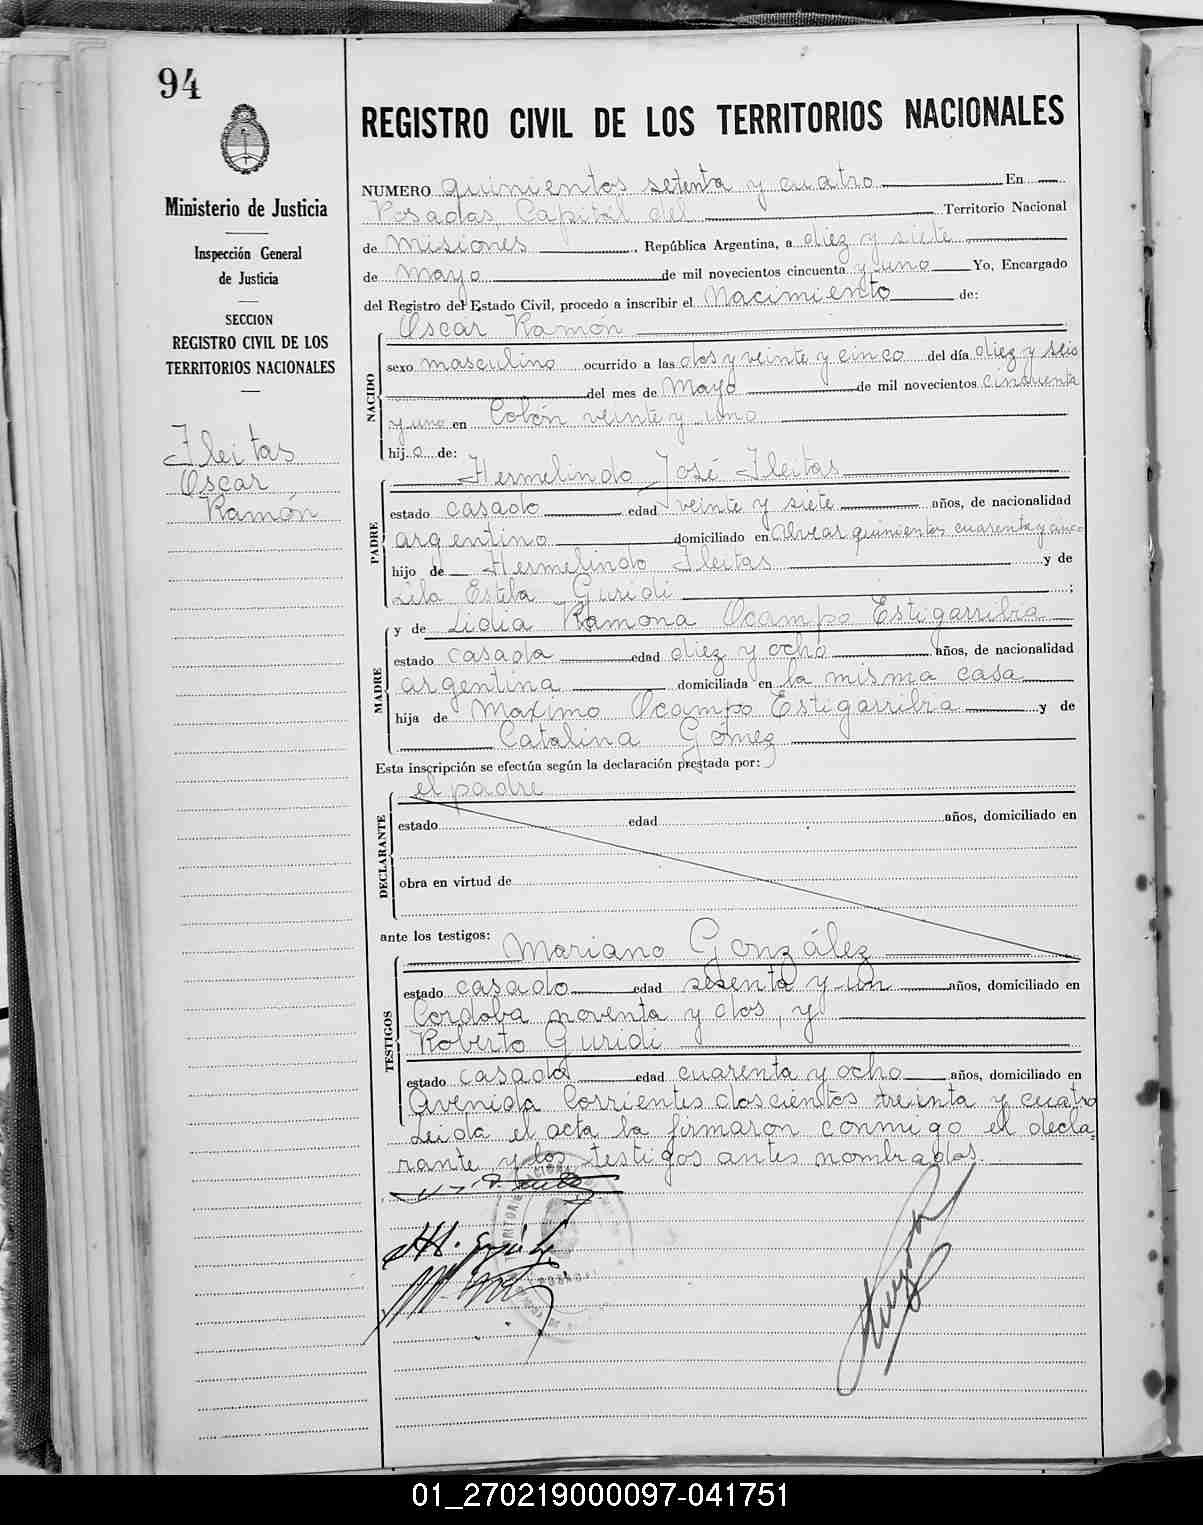 94
Ministerio de Justicia
Inspección General
de Justicia
SECCION
REGISTRO CIVIL DE LOS
TERRITORIOS NACIONALES
Fleitas
Oscar
Ramón
REGISTRO CIVIL DE LOS TERRITORIOS NACIONALES
NUMERO quinientos setenta y cuatro En
Posadas, Capital del Territorio Nacional
de Misiones, República Argentina, a diez y siete
de Mayo de mil novecientos cincuenta y uno Yo, Encargado
del Registro del Estado Civil, procedo a inscribir el Nacimiento de:
NACIDO
Oscar Ramón
sexo masculino ocurrido a las dos y veinte y cinco del día diez y seis
del mes de Mayo de mil novecientos cincuenta
y uno en Colón veinte y uno
hijo de:
PADRE
Hermelindo José Fleitas
estado casado edad veinte y siete años, de nacionalidad
argentino domiciliado en Alvear quinientos cuarenta y cinco
hijo de Hermelindo Fleitas y de
Lila Estela Guridi ;
MADRE
y de Lidia Ramona Ocampo Estigarribia
estado casada edad diez y ocho años, de nacionalidad
argentina domiciliada en la misma casa
hija de Maximo Ocampo Estigarribia y de
Catalina Gómez
Esta inscripción se efectúa según la declaración prestada por:
DECLARANTE
el padre
estado edad años, domiciliado en
obra en virtud de
ante los testigos:
TESTIGOS
Mariano González
estado casado edad sesenta y un años, domiciliado en
Cordoba noventa y dos, y
Roberto Guridi
estado casado edad cuarenta y ocho años, domiciliado en
Avenida Corrientes doscientos treinta y cuatro
Leida el acta la firmaron conmigo el decla
rante y los testigos antes nombrados.
01_270219000097-041751